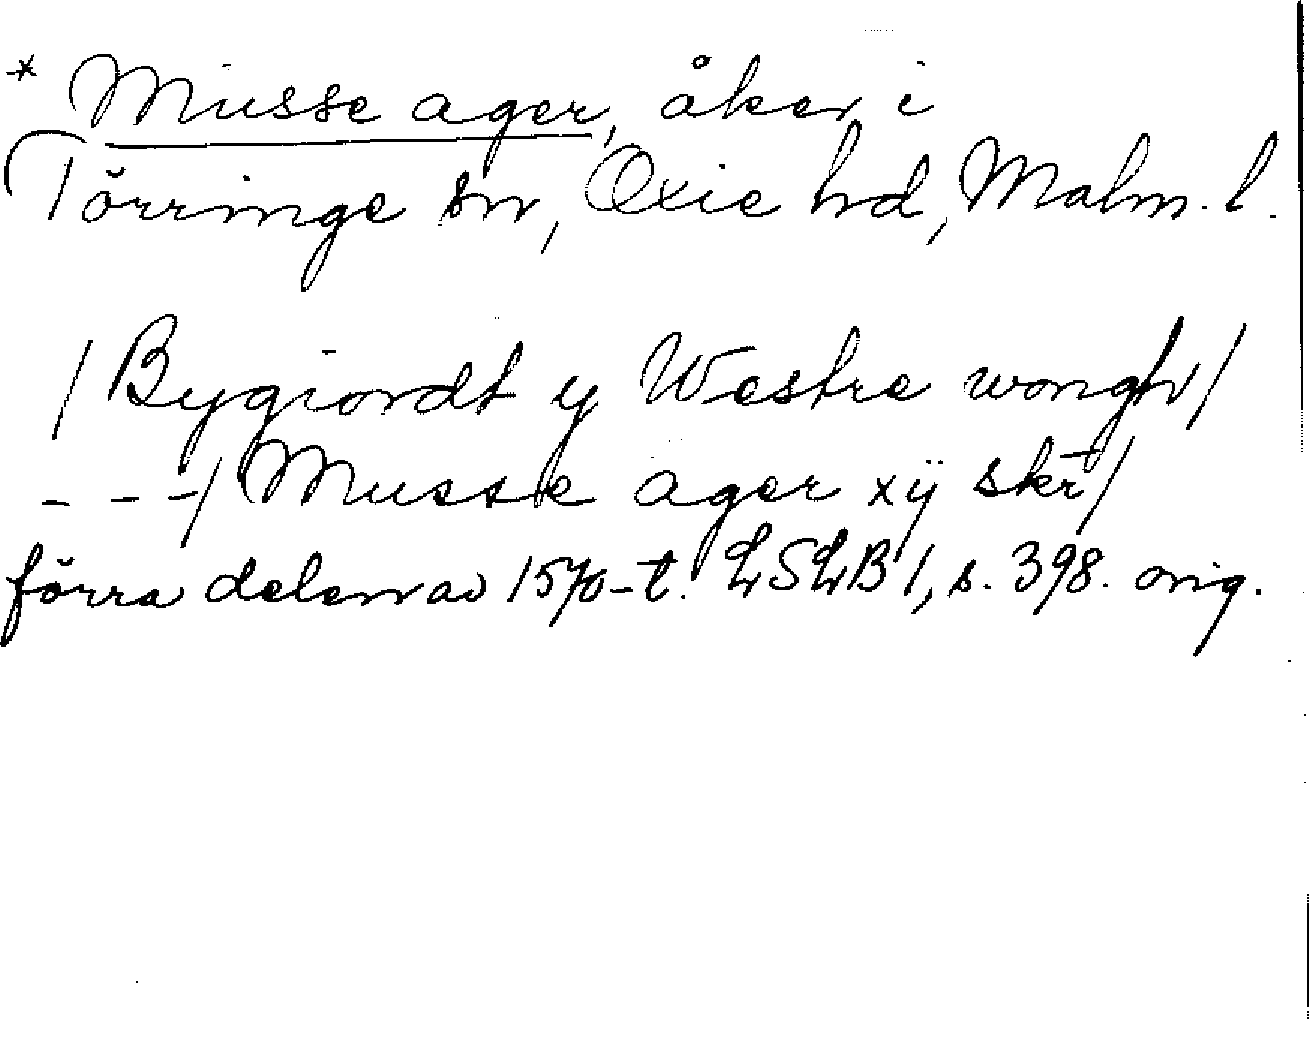 * Musse ager, åker i
Törringe sn, Oxie hd, Malm. l.
/ Bygiordt y Westre wongh /
- - - / Musse ager xÿ skr̄ /
förra delen av 1570-t. LSLB 1, s. 398. orig.